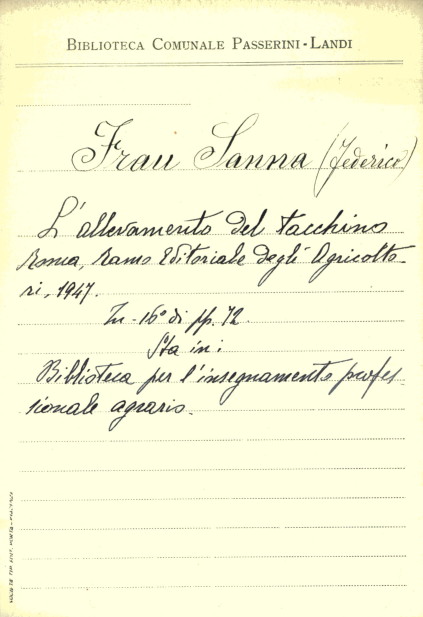 BIBLIOTECA COMUNALE PASSERINI-LANDI
Frau Sanna (Federico)
L'allevamento del tacchino
Roma, Ramo Editoriale degli Agricolto-
ri, 1947.
In-16° di pp. 72.
Sta in:
Biblioteca per l'insegnamento profes
sionale agrario.